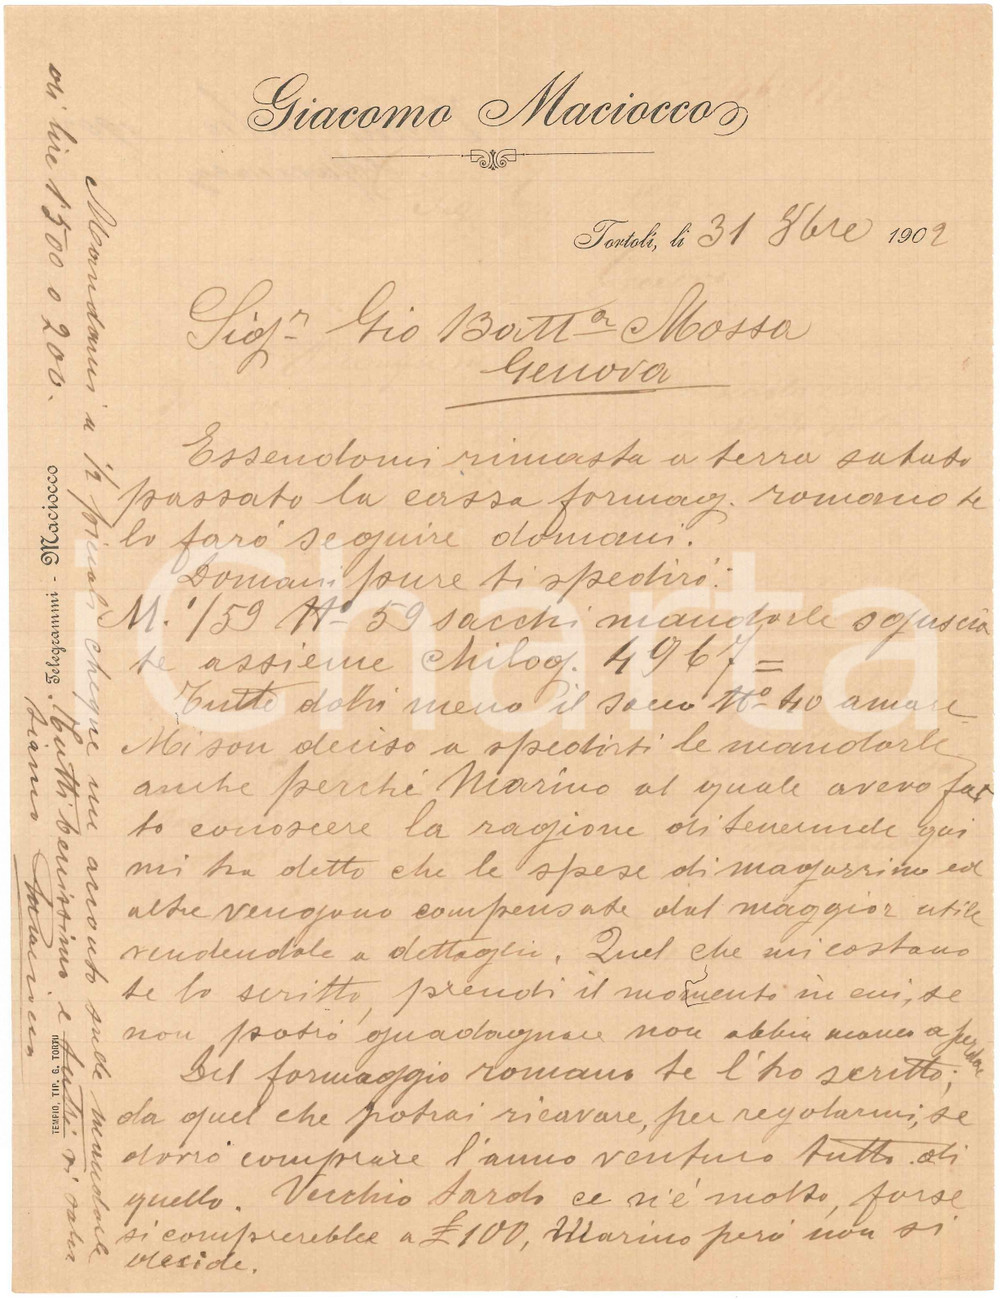 Giacomo Maciocco
Tortolì, li 31 8bre 1902
Sigr Gio Batta Mossa
Genova
Essendomi rimasta a terra sabato
passato la cassa formag. romano te
lo farò seguire domani.
Domani pure ti spedirò:
M. 1/59 No 59 sacchi mandorle sguscia
te assieme Chilog. 4967=
Tutte dolci meno il sacco No 40 amare
Mi son deciso a spedirti le mandorle
anche perché Marino al quale avevo fat
to conoscere la ragione di tenermele qui
mi ha detto che le spese di magazzino ed
altre vengono compensate dal maggior utile
vendendole a dettaglio. Quel che mi costano
te lo scritto, prendi il momento in cui, se
non potrò guadagnare non abbia manco a perdere
Del formaggio romano te l'ho scritto;
da quel che potrai ricavare, per regolarmi, se
dovrò comprare l'anno venturo tutto di
quello. Vecchio sardo ce n'è molto, forse
si comprerebbe a £100, Marino però non si
decide.
Mandami a 1/2 chèque un acconto sulle mandorle
di lire 1500 o 200.
Telegrammi - Maciocco
Tutti benissimo e tutti vi salu
tiamo
TEMPIO, TIP. G. TORTU
iCharta